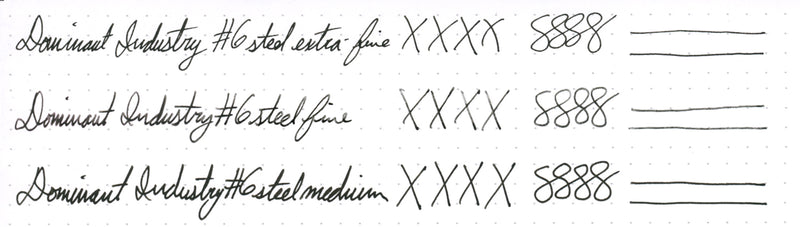 Dominant Industry #6 steel extra-fine XXXX 8888
Dominant Industry #6 steel fine XXXX 8888
Dominant Industry #6 steel medium XXXX 8888